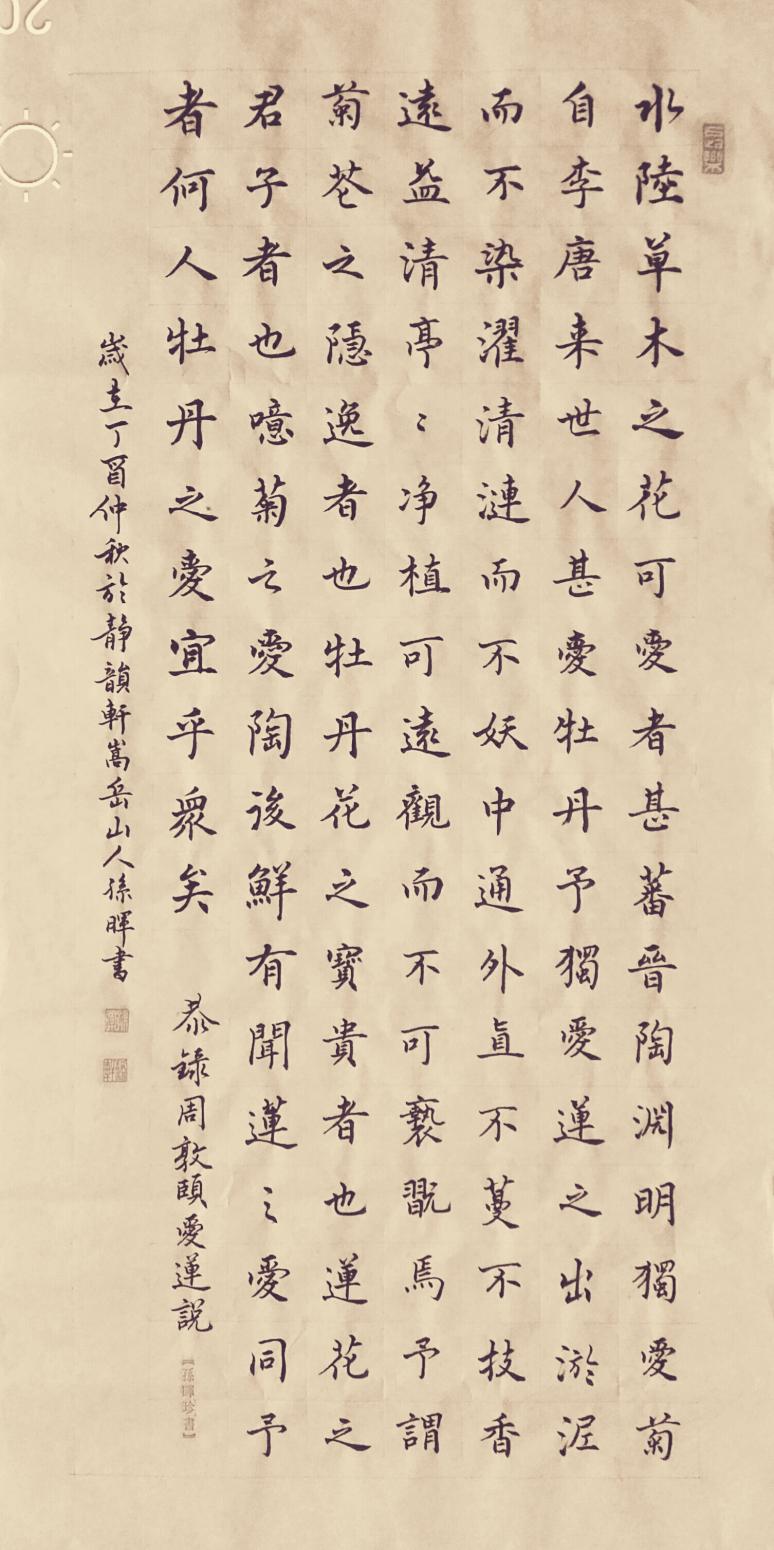 水陸草木之花可愛者甚蕃晉陶淵明獨愛菊
自李唐来世人甚愛牡丹予獨愛蓮之出淤泥
而不染濯清漣而不妖中通外直不蔓不技香
遠益清亭〻净植可遠觀而不可褻翫焉予謂
菊花之隱逸者也牡丹花之寶貴者也蓮花之
君子者也噫菊之愛陶後鮮有聞蓮〻愛同予
者何人牡丹之愛宜乎衆矣
恭錄周敦頤愛蓮説
【孫暉珍書】
歲在丁酉仲秋於靜韻軒嵩岳山人孫暉書